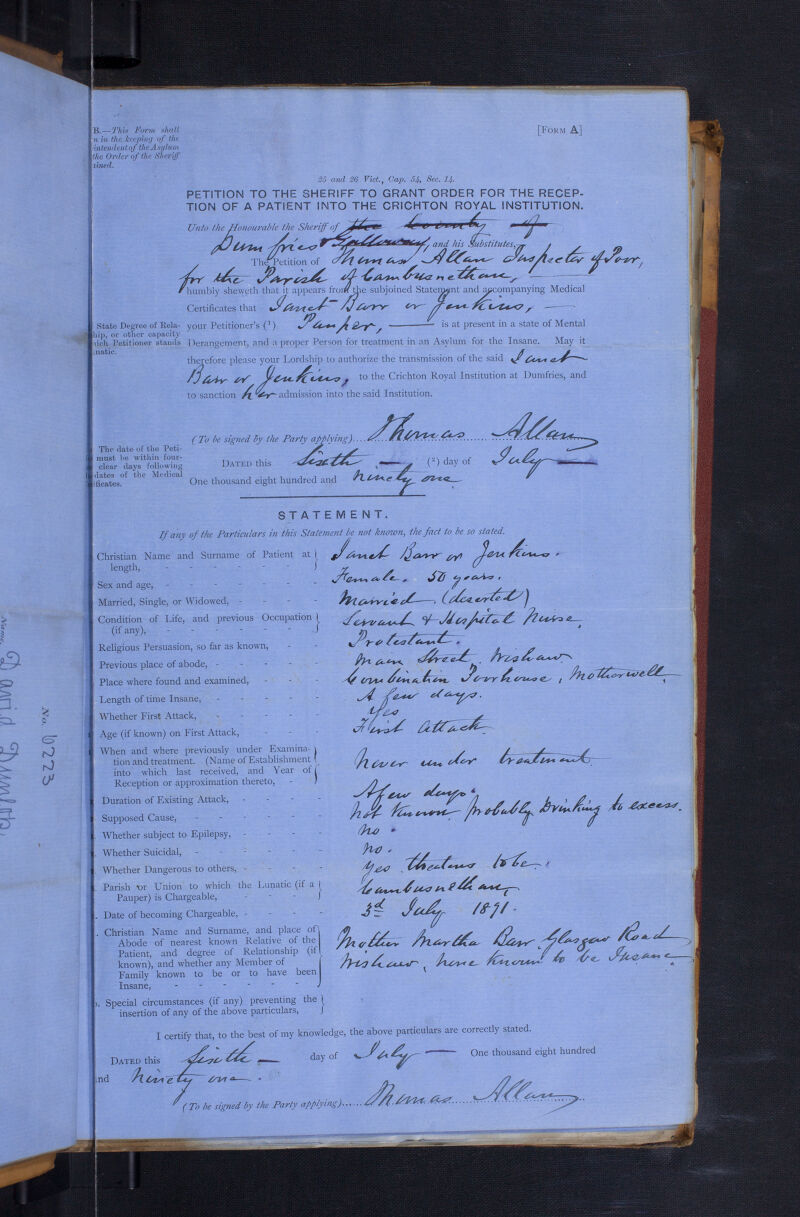 B.—This Form shall
n in the keeping of the
intendent of the Asylum
the Order of the Sheriff
ained.
[FORM A]
25 and 26 Vict., Cap. 54, Sec. 14.
PETITION TO THE SHERIFF TO GRANT ORDER FOR THE RECEP-
TION OF A PATIENT INTO THE CRICHTON ROYAL INSTITUTION.
Unto the Honourable the Sheriff of the County of
Dumfries & Galloway, and his Substitutes,
The Petition of Thomas Allan Inspector of Poor,
for the Parish of Cambusnethan,
humbly sheweth that it appears from the subjoined Statement and accompanying Medical
Certificates that Janet Barr or Jenkins,
State Degree of Rela-
hip, or other capacity
hich Petitioner stands
natic.
your Petitioner's (¹) Pauper, is at present in a state of Mental
Derangement, and a proper Person for treatment in an Asylum for the Insane. May it
therefore please your Lordship to authorize the transmission of the said Janet
Barr or Jenkins, to the Crichton Royal Institution at Dumfries, and
to sanction her admission into the said Institution.
(To be signed by the Party applying) Thomas Allan
The date of the Peti-
must be within four-
clear days following
dates of the Medical
ificates.
DATED this Sixth (²) day of July
One thousand eight hundred and ninety one
STATEMENT.
If any of the Particulars in this Statement be not known, the fact to be so stated.
Christian Name and Surname of Patient at length, Janet Barr or Jenkins.
Sex and age, Female. 50 years.
Married, Single, or Widowed, Married (deserted)
Condition of Life, and previous Occupation (if any), Servant & Hospital Nurse.
Religious Persuasion, so far as known, Protestant.
Previous place of abode, Main Street, Wishaw.
Place where found and examined, Combination Poorhouse, Motherwell.
Length of time Insane, A few days.
Whether First Attack, Yes
Age (if known) on First Attack, First Attack.
When and where previously under Examina-
tion and treatment. (Name of Establishment
into which last received, and Year of
Reception or approximation thereto, Never under treatment
Duration of Existing Attack, A few days.
Supposed Cause, Not known. Probably Drinking to excess.
Whether subject to Epilepsy, No.
Whether Suicidal, No.
Whether Dangerous to others, Yes threatens to be.
Parish or Union to which the Lunatic (if a
Pauper) is Chargeable, Cambusnethan,
Date of becoming Chargeable, 3d July 1891.
Christian Name and Surname, and place of
Abode of nearest known Relative of the
Patient, and degree of Relationship (if
known), and whether any Member of
Family known to be or to have been
Insane,
Mother Martha Barr Glasgow Road
Wishaw, none known to be Insane
Special circumstances (if any) preventing the
insertion of any of the above particulars,
I certify that, to the best of my knowledge, the above particulars are correctly stated.
DATED this Sixth day of July One thousand eight hundred
nd Ninety one.
(To be signed by the Party applying) Thomas Allan
No. 6223
Name, David Dunlop